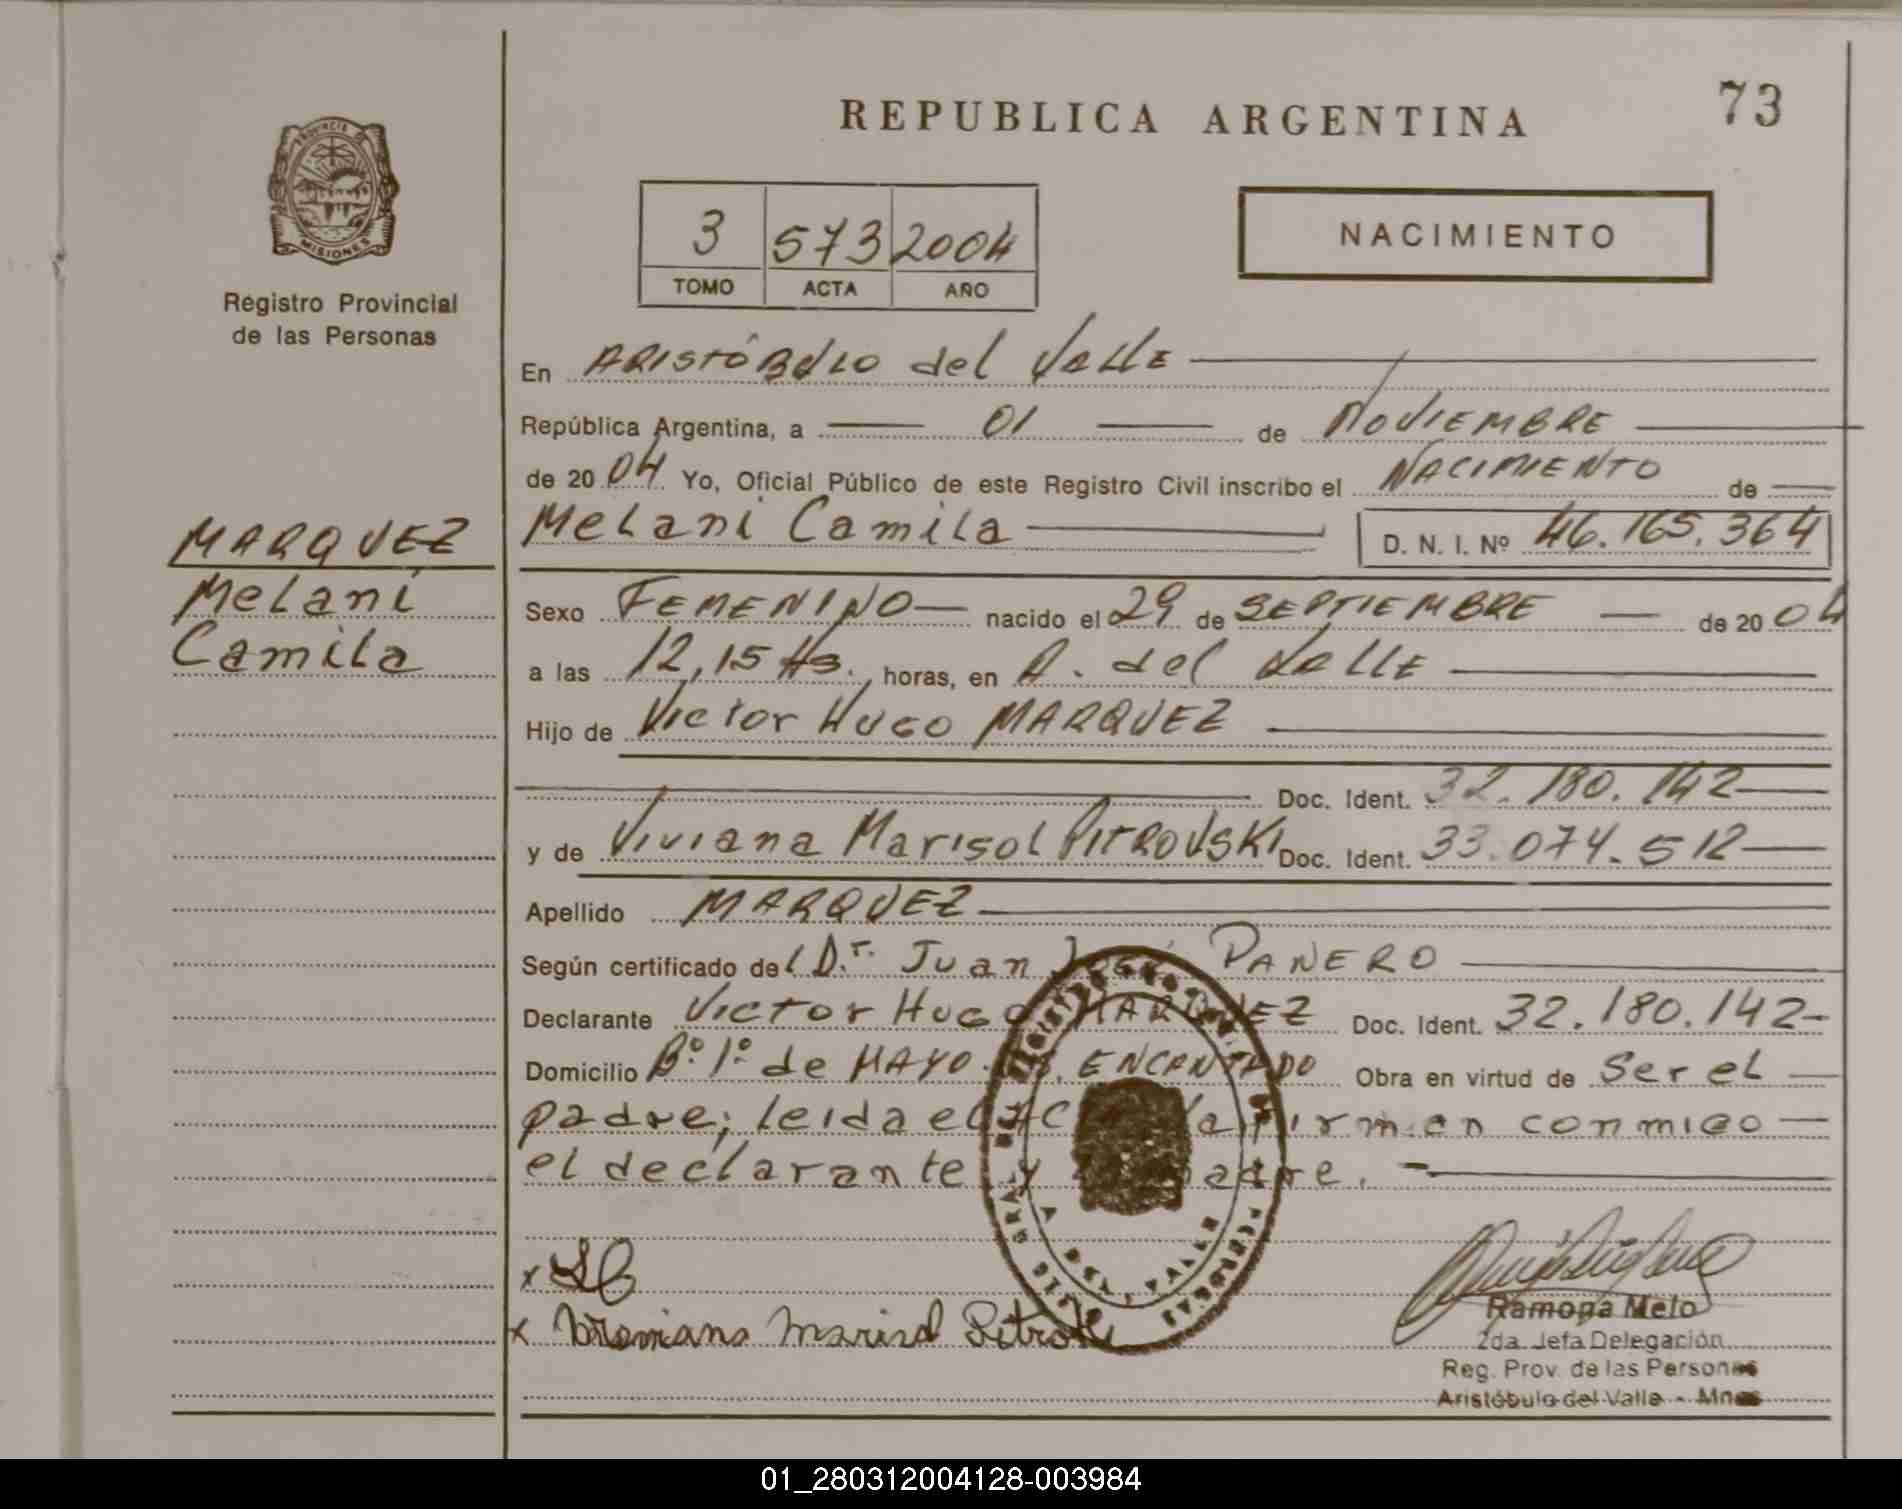 73
REPUBLICA ARGENTINA
PROVINCIA DE
MISIONES
Registro Provincial
de las Personas
3 573 2004
TOMO ACTA AÑO
NACIMIENTO
En ARISTÓBULO del VALLE
República Argentina, a 01 de NOVIEMBRE
de 20 04 Yo, Oficial Público de este Registro Civil inscribo el NACIMIENTO de
MARQUEZ
Melani
Camila
Melani Camila D. N. I. Nº 46.165.364
Sexo FEMENINO nacido el 29 de SEPTIEMBRE de 20 04
a las 12,15 Hs. horas, en A. del VALLE
Hijo de Victor Hugo MARQUEZ
Doc. Ident. 32.180.142
y de Viviana Marisol PITROVSKI Doc. Ident. 33.074.512
Apellido MARQUEZ
Según certificado del Dr. Juan José PANERO
Declarante Victor Hugo MARQUEZ Doc. Ident. 32.180.142-
Domicilio Bº 1º de MAYO ENCANTADO Obra en virtud de Ser el
padre; leida el Acta la firman conmigo
el declarante y la madre.
x
x Marisol
Ramona Melo
2da. Jefa Delegación
Reg. Prov. de las Personas
Aristóbulo del Valle - Mnes
01_280312004128-003984